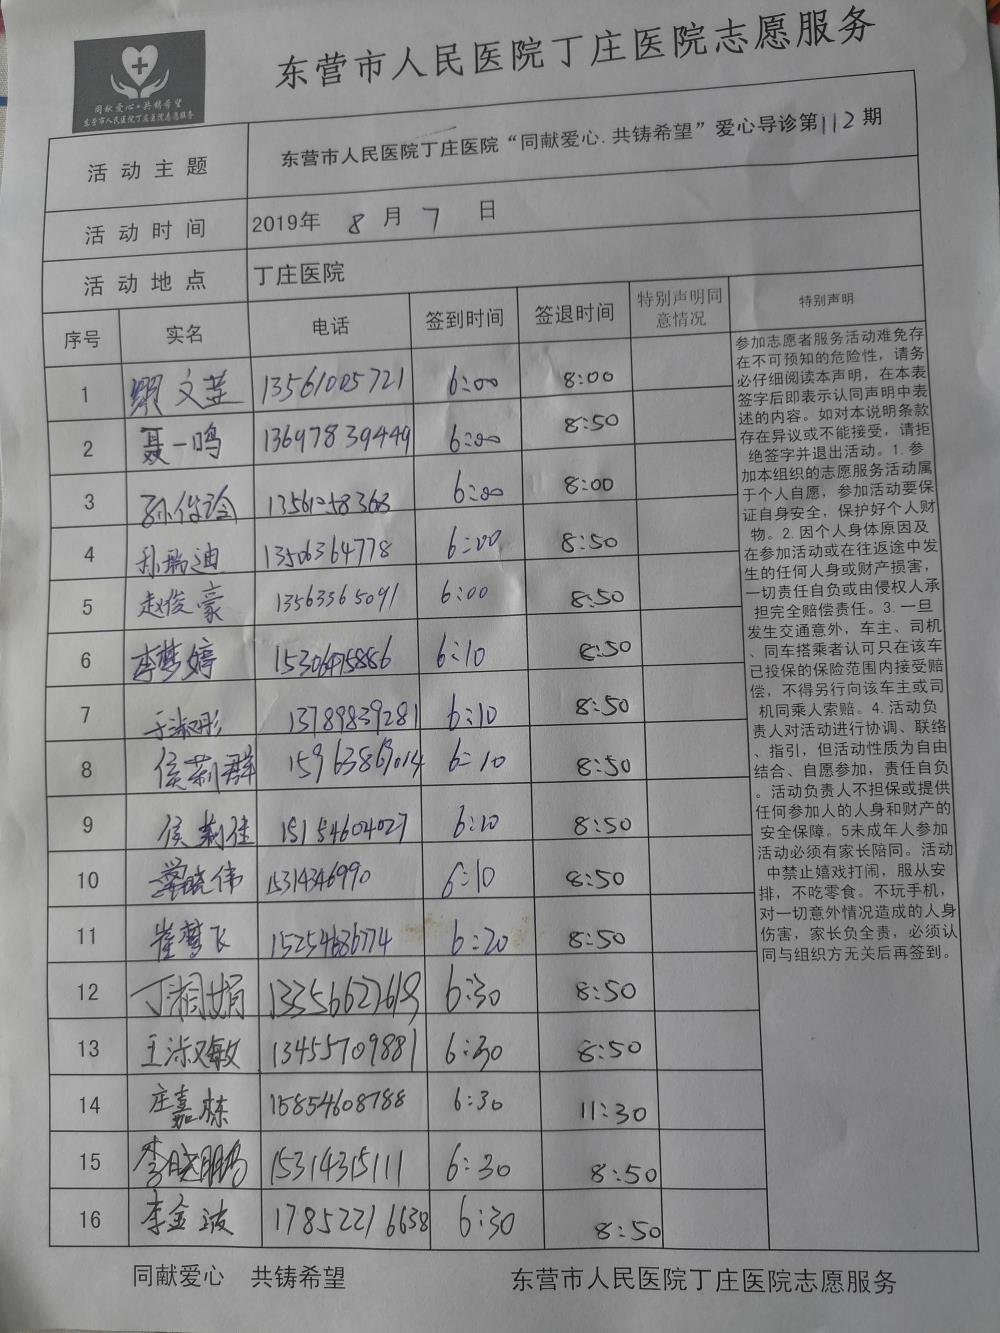 同献爱心·共铸希望
东营市人民医院丁庄医院志愿服务
东营市人民医院丁庄医院志愿服务
活动主题 东营市人民医院丁庄医院“同献爱心.共铸希望”爱心导诊第112期
活动时间 2019年 8月 7 日
活动地点 丁庄医院
序号 实名 电话 签到时间 签退时间 特别声明同意情况 特别声明
1 文莹 13561005721 6:00 8:00
2 聂一鸣 13697839449 6:00 8:50
3 孙 6:00 8:00
4 孙瑞迪 13506364778 6:00 8:50
5 赵俊豪 13563365091 6:00 8:50
6 李梦婷 6:10 8:50
7 于淑彤 13789839281 6:10 8:50
8 侯莉群 6:10 8:50
9 侯莉佳 15154604027 6:10 8:50
10 晓伟 15314346990 6:10 8:50
11 崔梦飞 15254686774 6:20 8:50
12 丁湘娟 6:30 8:50
13 王淑敏 13455709881 6:30 8:50
14 庄嘉栋 15854608788 6:30 11:30
15 李晓鹏 15314315111 6:30 8:50
16 李金波 17852216638 6:30 8:50
参加志愿者服务活动难免存
在不可预知的危险性，请务
必仔细阅读本声明，在本表
签字后即表示认同声明中表
述的内容。如对本说明条款
存在异议或不能接受，请拒
绝签字并退出活动。1. 参
加本组织的志愿服务活动属
于个人自愿，参加活动要保
证自身安全，保护好个人财
物。2. 因个人身体原因及
在参加活动或在往返途中发
生的任何人身或财产损害，
一切责任自负或由侵权人承
担完全赔偿责任。3. 一旦
发生交通意外，车主、司机
、同车搭乘者认可只在该车
已投保的保险范围内接受赔
偿，不得另行向该车主或司
机同乘人索赔。4. 活动负
责人对活动进行协调、联络
、指引，但活动性质为自由
结合、自愿参加，责任自负
。活动负责人不担保或提供
任何参加人的人身和财产的
安全保障。5未成年人参加
活动必须有家长陪同。活动
中禁止嬉戏打闹，服从安
排，不吃零食。不玩手机，
对一切意外情况造成的人身
伤害，家长负全责，必须认
同与组织方无关后再签到。
同献爱心 共铸希望 东营市人民医院丁庄医院志愿服务